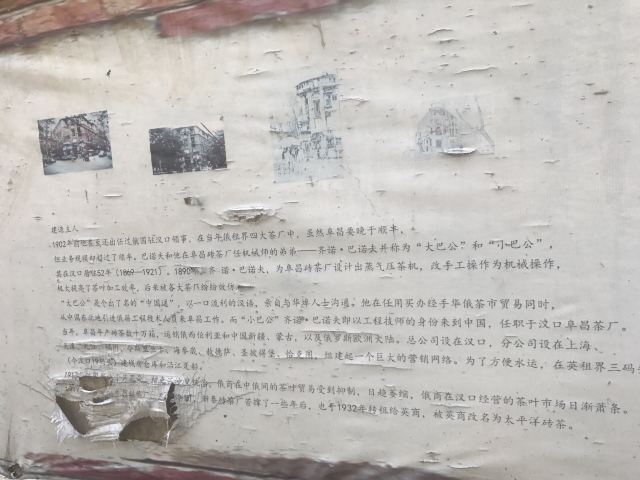 建造主人
1902年前他甚至还出任过俄国驻汉口领事。在当年俄租界四大茶厂中，虽然阜昌要晚于顺丰，
但业务规模却超过了顺丰。巴诺夫和他在阜昌砖茶厂任机械师的弟弟——齐诺·巴诺夫并称为“大巴公”和“小巴公”，
其在汉口居住52年（1869—1921）。1890年，齐·诺·巴诺夫，为阜昌砖茶厂设计出蒸气压茶机，改手工操作为机械操作，
极大提高了茶叶加工效率，后来被各大茶厂纷纷效仿。
“大巴公”是个出了名的“中国通”，以一口流利的汉语，亲自与华埠人士沟通。他在任用买办经手华俄茶市贸易同时，
从中国东北地引进俄籍工程技术人员来阜昌工作。而“小巴公”齐诺·巴诺夫即以工程技师的身份来到中国，任职于汉口阜昌茶厂。
当年，阜昌年产砖茶数十万箱，运销俄西伯利亚和中国新疆、蒙古，以及俄罗斯欧洲大陆。总公司设在汉口，分公司设在上海、
海参崴、敖德萨、圣彼得堡、恰克图，组建起一个巨大的营销网络。为了方便水运，在英租界三码
建栈房仓库和沿江趸船。
俄商在中俄间的茶叶贸易受到抑制，日趋萎缩，俄商在汉口经营的茶叶市场日渐萧条。
砖茶厂苦撑了一些年后，也于1932年转租给英商，被英商改名为太平洋砖茶。